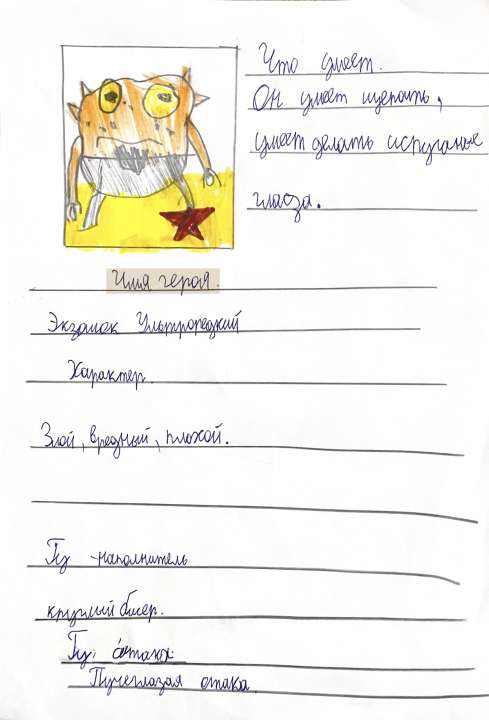 Что умеет.
Он умеет щепать,
умеет делать испуганые
глаза.
Имя героя.
Экзамок Ультраредкий
Характер.
Злой, вредный, плохой.
Гу -наполнитель
круглый бисер.
Гу. атака
Пучеглазая атака.